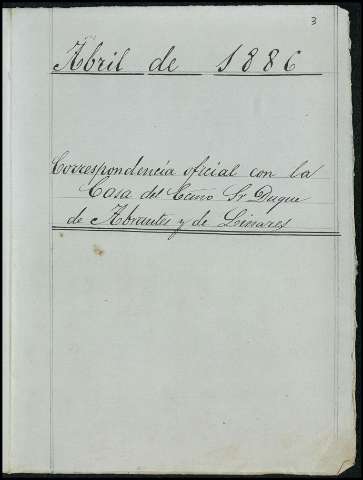 3
Abril de 1886
Correspondencia oficial con la
Casa del Ecmo Sr Duque
de Abrantes y de Linares